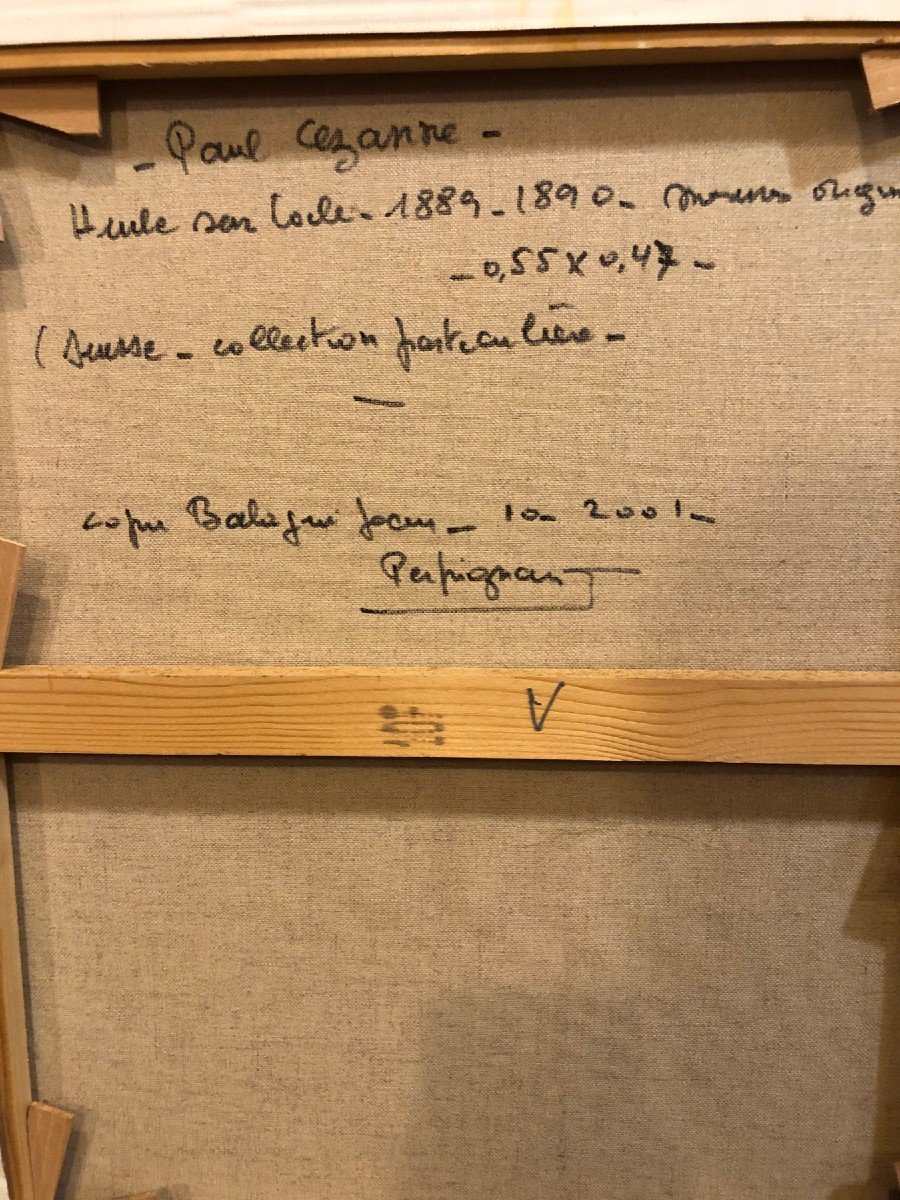 - Paul Cezanne -
Huile sur toile - 1889 - 1890 - mesures origin
- 0,55 x 0,47 -
( Suisse - collection particulière -
copie Balagué Jean - 10 - 2001 -
Perpignan
A